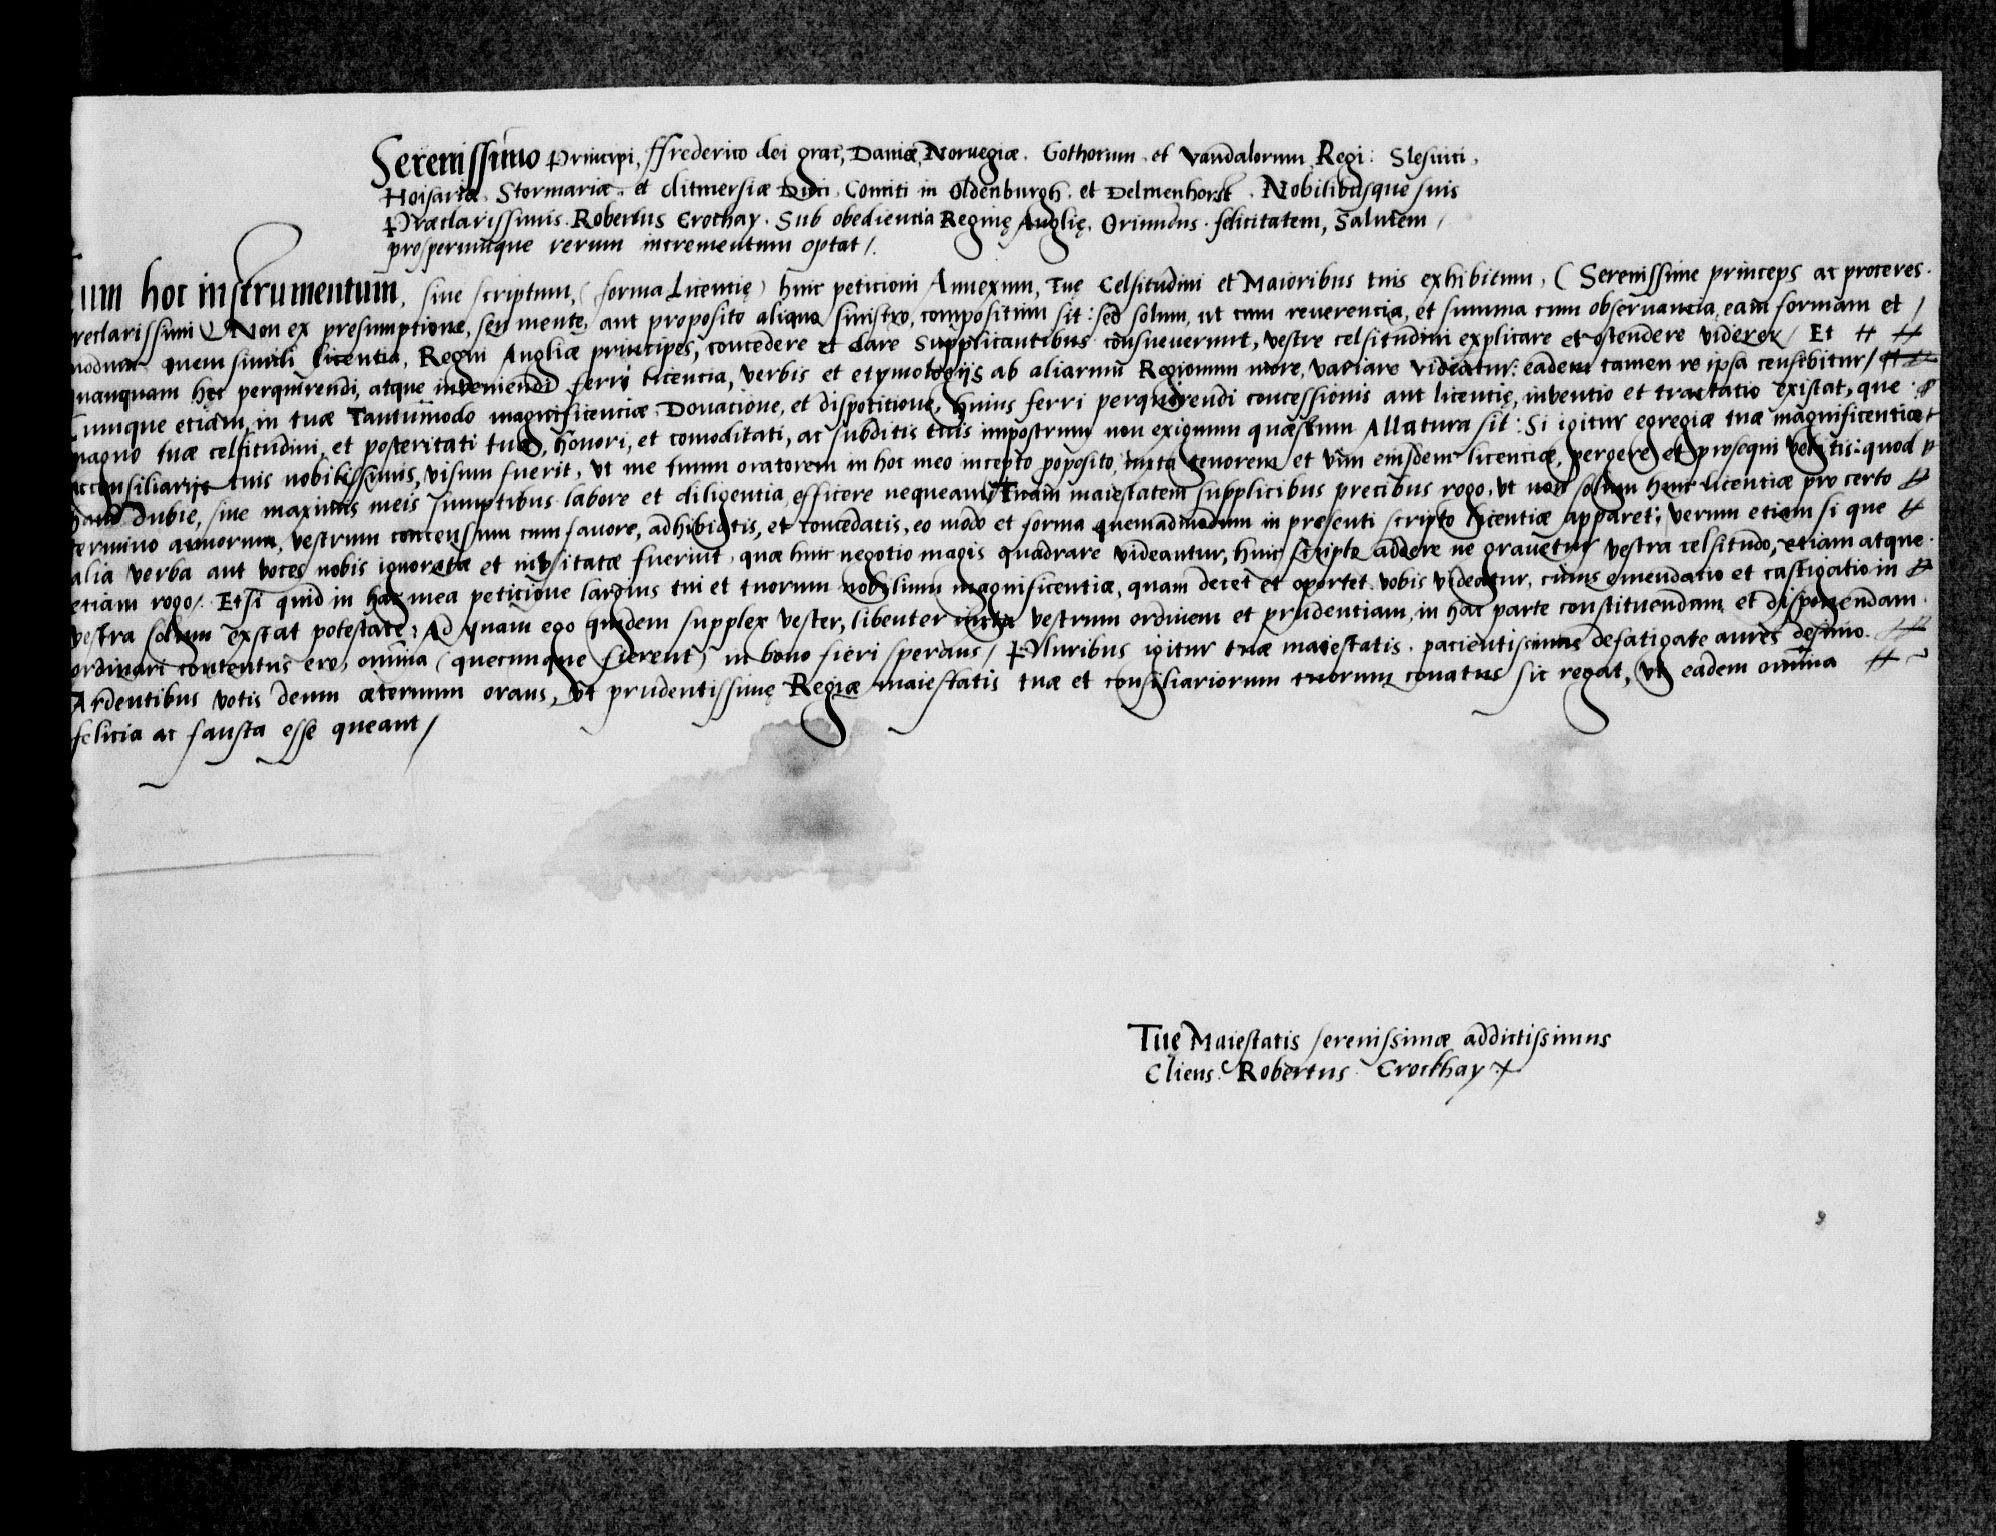 Serenissimo Principi, Ffrederico dei grac, Daniæ, Norvegiæ. Gothorum. et Vandalorum Regi: Slesuici,
Hoisariæ. Stormariæ. et ditmersiæ Duci, Comiti in Oldenburgh. et Delmenhorst. Nobilibusque suis
Præclarissimis. Robertus Crochay. Sub obediencia Reginę Anglię. Oriundus. felicitatem, Salutem,
prosperumque rerum incrementum optat/.
um hoc instrumentum, siue scriptum, (forma Licentię) huic peticioni Annexum, Tuę Celsitudini et Maioribus tuis exhibitum, (Serenissime princeps ac proceres.
reclarissimi) Non ex presumptione, seu mente, aut proposito aliquo sinistro, compositum sit: sed solum, ut cum reuerencia, et summa cum obseruancia, eam formam et /
modum quem simili licentia, Regni Angliæ principes, concedere et dare Supplicantibus consueuerunt, vestre celsitudini explicare et ostendere viderer/ Et
uanquam hec perquirendi, atque inveniendi ferri licencia, verbis et etymologijs ab aliarum Regionum more, variare videatur: eadem tamen re ipsa censibitur/
Cumque etiam, in tuæ Tantumodo magnificenciæ, Donacione, et dispositione, huius ferri perquirendi concessionis aut licentię, inventio et tractatio existat, que
magno tuæ celsitudini, et posteritati tuæ, honori, et comoditati, ac subditis tuis impostrum non exiguum quæstum Allatura sit: Si igitur egregiæ tuæ magnificentiæ
ac consiliarijs tuis nobilissimis, visum fuerit, vt me tuum oratorem in hoc meo incepto poposito, iuxta tenorem et vim eiusdem licenciæ, pergere et prosequi velitis: quod
haud dubie, sine maximis meis sumptibus labore et diligentia, efficere nequeam/ Tuam maiestatem supplicibus precibus rogo, vt non solum huic licentiæ pro certo
termino annorum, vestrum concensum cum fauore, adhibiatis, et concedatis, eo modo et forma quemadmodum in presenti scripto licentiæ apparet; verum etiam si que
alia verba aut voces nobis ignoratæ et invsitatæ fuerint, quæ huic negotio magis quadrare videantur, huic scripto addere ne grauetur vestra celsitudo, etiam atque
etiam rogo/. Et si quid in hac mea peticione largius tui et tuorum nobilium magnificentiæ, quam decet et oportet vobis videatur, cuius emendatio et castigatio in
vestra solum exstat potestate: Ad quam ego quidem supplex vester, libenter iuxta vestrum ordinem et prudentiam, in hac parte constituendam et disponendam
ordinari contentus ero, omnia (quecunque fierent) in bono fieri sperans/ Pluribus igitur tuæ maiestatis pacientissimæ defatigate aures desino.
Ardentibus votis deum æternum orans, vt prudentissimę Regiæ maiestatis tuæ et consiliariorum tuorum conatus sic regat, vt eadem omnia
felicia ac fausta esse queant/
Tuę Maiestatis serenissimæ addictissimus
Cliens. Robertus Crockhay